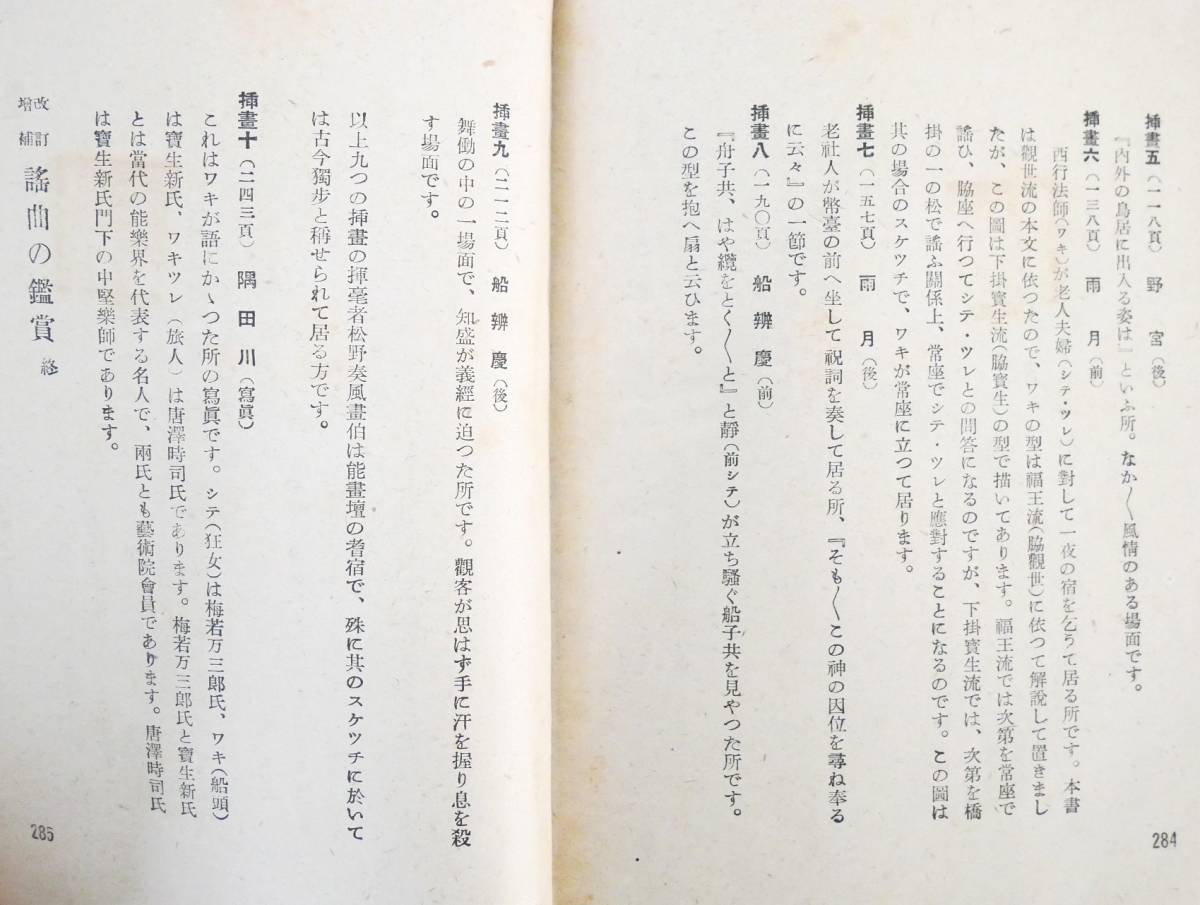 挿畫五(一一八頁) 野宮(後)
『內外の鳥居に出入る姿は』といふ所。なか〱風情のある場面です。
挿畫六(一三八頁) 雨月(前)
西行法師(ワキ)が老人夫婦(シテ・ツレ)に對して一夜の宿を乞うて居る所です。本書
は觀世流の本文に依つたので、ワキの型は福王流(脇觀世)に依つて解說して置きまし
たが、この圖は下掛寶生流(脇寶生)の型で描いてあります。福王流では次第を常座で
謠ひ、脇座へ行つてシテ・ツレとの問答になるのですが、下掛寶生流では、次第を橋
掛の一の松で謠ふ關係上、常座でシテ・ツレと應對することになるのです。この圖は
其の場合のスケツチで、ワキが常座に立つて居ります。
挿畫七(一五七頁) 雨月(後)
老社人が幣臺の前へ坐して祝詞を奏して居る所、『そも〱この神の因位を尋ね奉る
に云々』の一節です。
挿畫八(一九〇頁) 船辨慶(前)
『舟子共、はや纜をとく〱と』と靜(前シテ)が立ち騷ぐ船子共を見やつた所です。
この型を抱へ扇と云ひます。
284
挿畫九(二一二頁) 船辨慶(後)
舞働の中の一場面で、知盛が義經に迫つた所です。觀客が思はず手に汗を握り息を殺
す場面です。
以上九つの挿畫の揮毫者松野奏風畫伯は能畫壇の耆宿で、殊に其のスケツチに於いて
は古今獨步と稱せられて居る方です。
挿畫十(二四三頁) 隅田川(寫眞)
これはワキが語にかゝつた所の寫眞です。シテ(狂女)は梅若万三郎氏、ワキ(船頭)
は寶生新氏、ワキツレ(旅人)は唐澤時司氏であります。梅若万三郎氏と寶生新氏
とは當代の能樂界を代表する名人で、兩氏とも藝術院會員であります。唐澤時司氏
は寶生新氏門下の中堅樂師であります。
改訂增補 謠曲の鑑賞 終
285